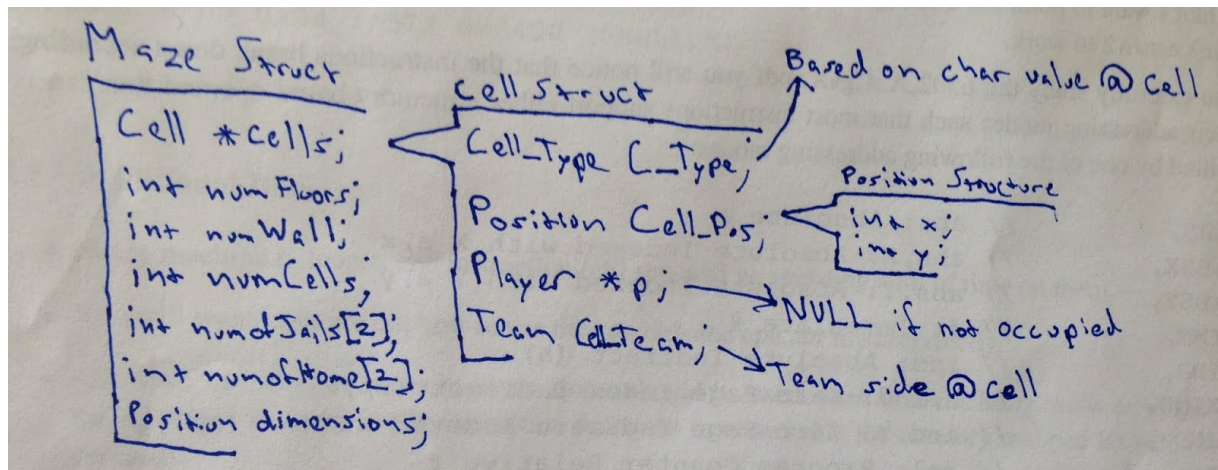 Maze Struct
Cell *cells;
int numFloors;
int numWall;
int numCells;
int numofJails[2];
int numofHome[2];
Position dimensions;
Cell Struct
Cell_Type C_Type;
Position Cell_Pos;
Player *p;
Team Cell_Team;
Based on char value @ cell
Position Structure
int x;
int y;
NULL if not occupied
Team side @ cell